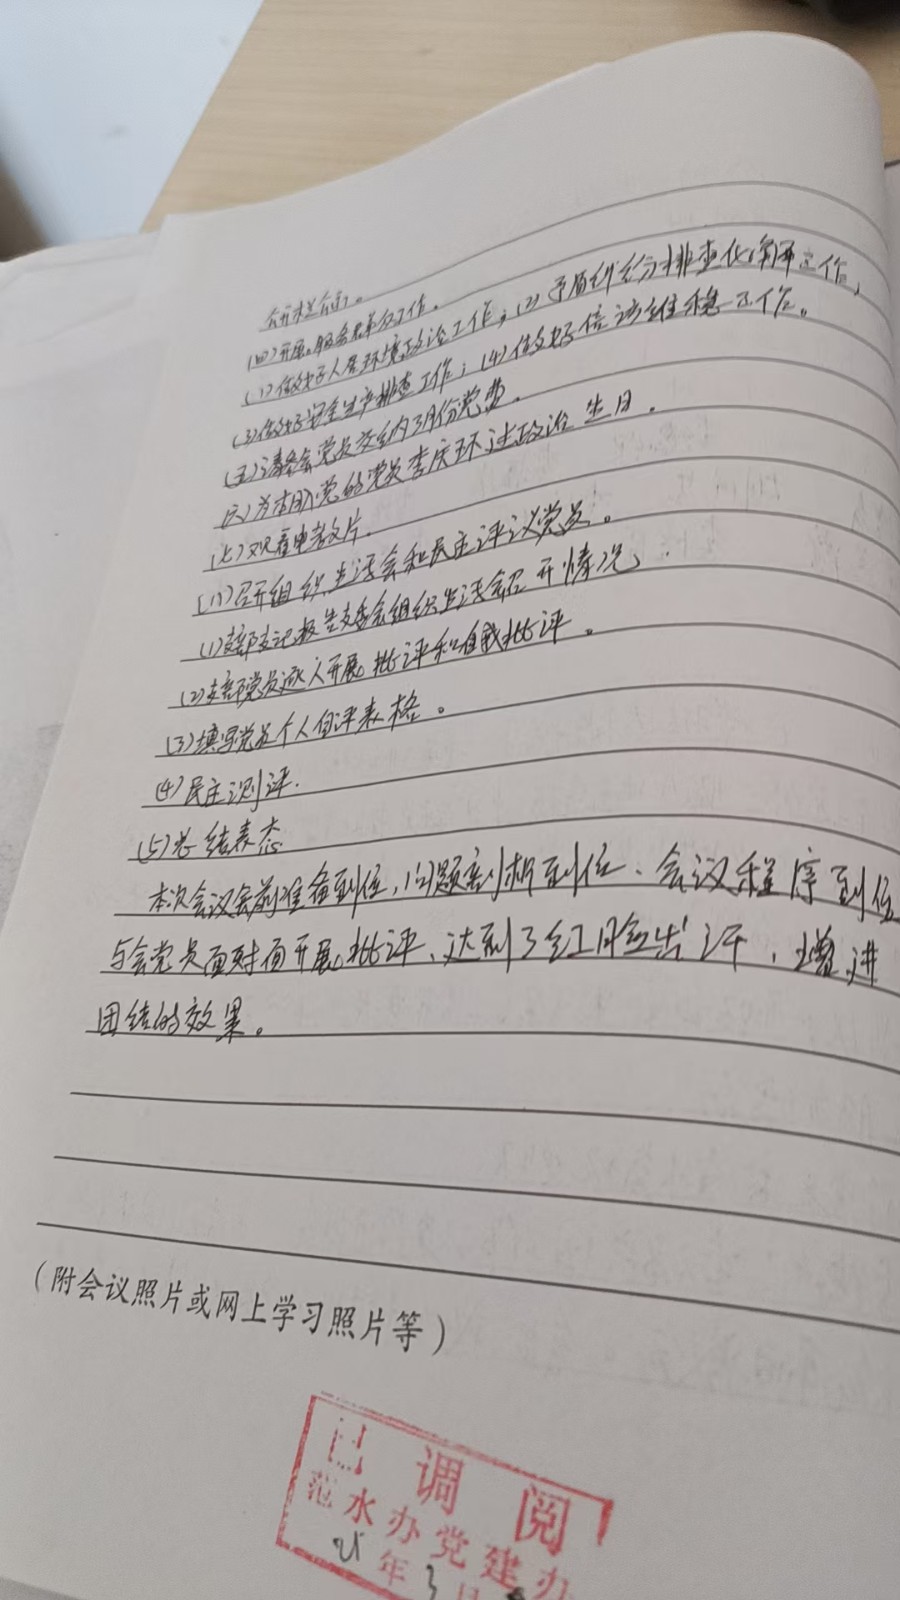 (四)开展服务群众工作。
(1)做好人居环境整治工作；(2)矛盾纠纷排查化解工作；
(3)做好安全生产排查工作；(4)做好信访维稳工作。
(五)请参会党员交纳3月份党费。
(六)为本月入党的党员李庆环过政治生日。
(七)观看电教片。
(八)召开组织生活会和民主评议党员。
(1)支部书记报告支委会组织生活会召开情况、
(2)支部党员逐人开展批评和自我批评。
(3)填写党员个人自评表格。
(4)民主测评.
(5)总结表态
本次会议会前准备到位,问题剖析到位、会议程序到位
与会党员面对面开展批评、达到了红脸出汗、增进
团结的效果。
(附会议照片或网上学习照片等)
已调阅
范水办党建办
21年3月